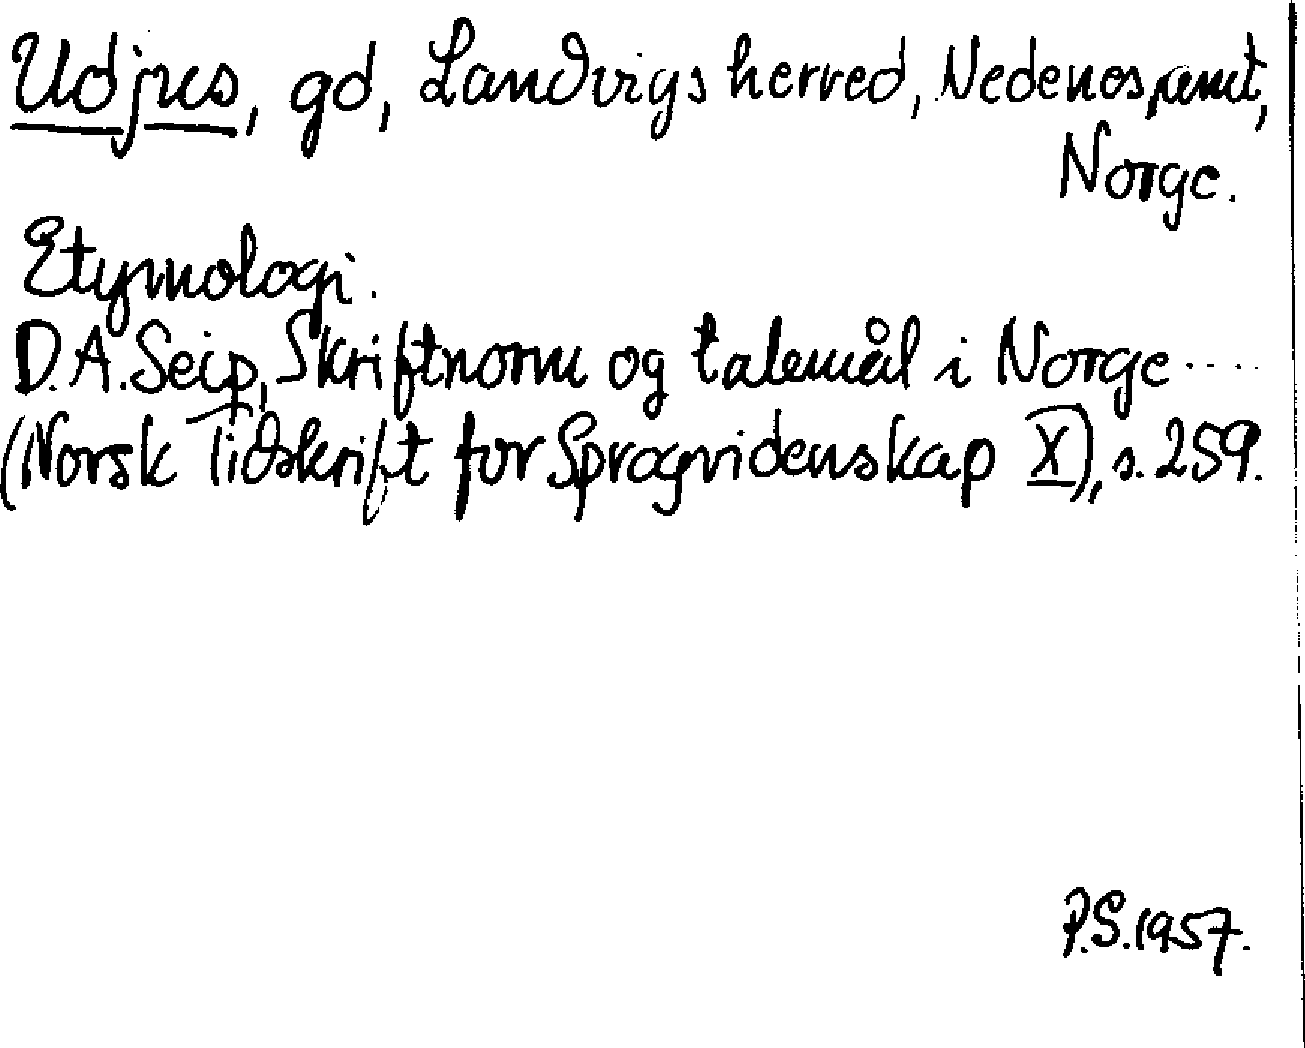 Udjus, gd, Landvigs herred, Nedenes amt,
Norge.
Etymologi.
D.A. Seip, Skriftnorm og talemål i Norge ....
(Norsk Tidskrift for Sprogvidenskap X), s. 259.
P.S. 1957.